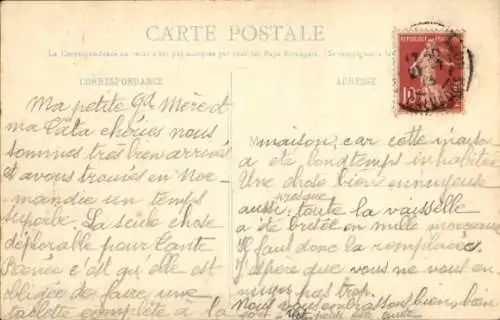 CARTE POSTALE
La Correspondance au recto n'est pas acceptée par tous les Pays étrangers. (Se renseigner
CORRESPONDANCE
ADRESSE
Ma petite Gd Mère et
ma Tata chéries nous
sommes très bien arrivés
et avons trouvés en Nor
mandie un temps
superbe. La seule chose
déplorable pour Tante
Renée c'est qu'elle est
obligée de faire une
toilette complète à la
maison, car cette maison
a été longtemps inhabitée
Une chose bien ennuyeuse
aussi: presque toute la vaisselle
a été brisée en mille morceaux
Il faut donc la remplacer.
J'espère que vous ne vous en
nuyez pas trop.
Nous vous embrassons bien bien
fort
REPUBLIQUE FRANÇAISE
10